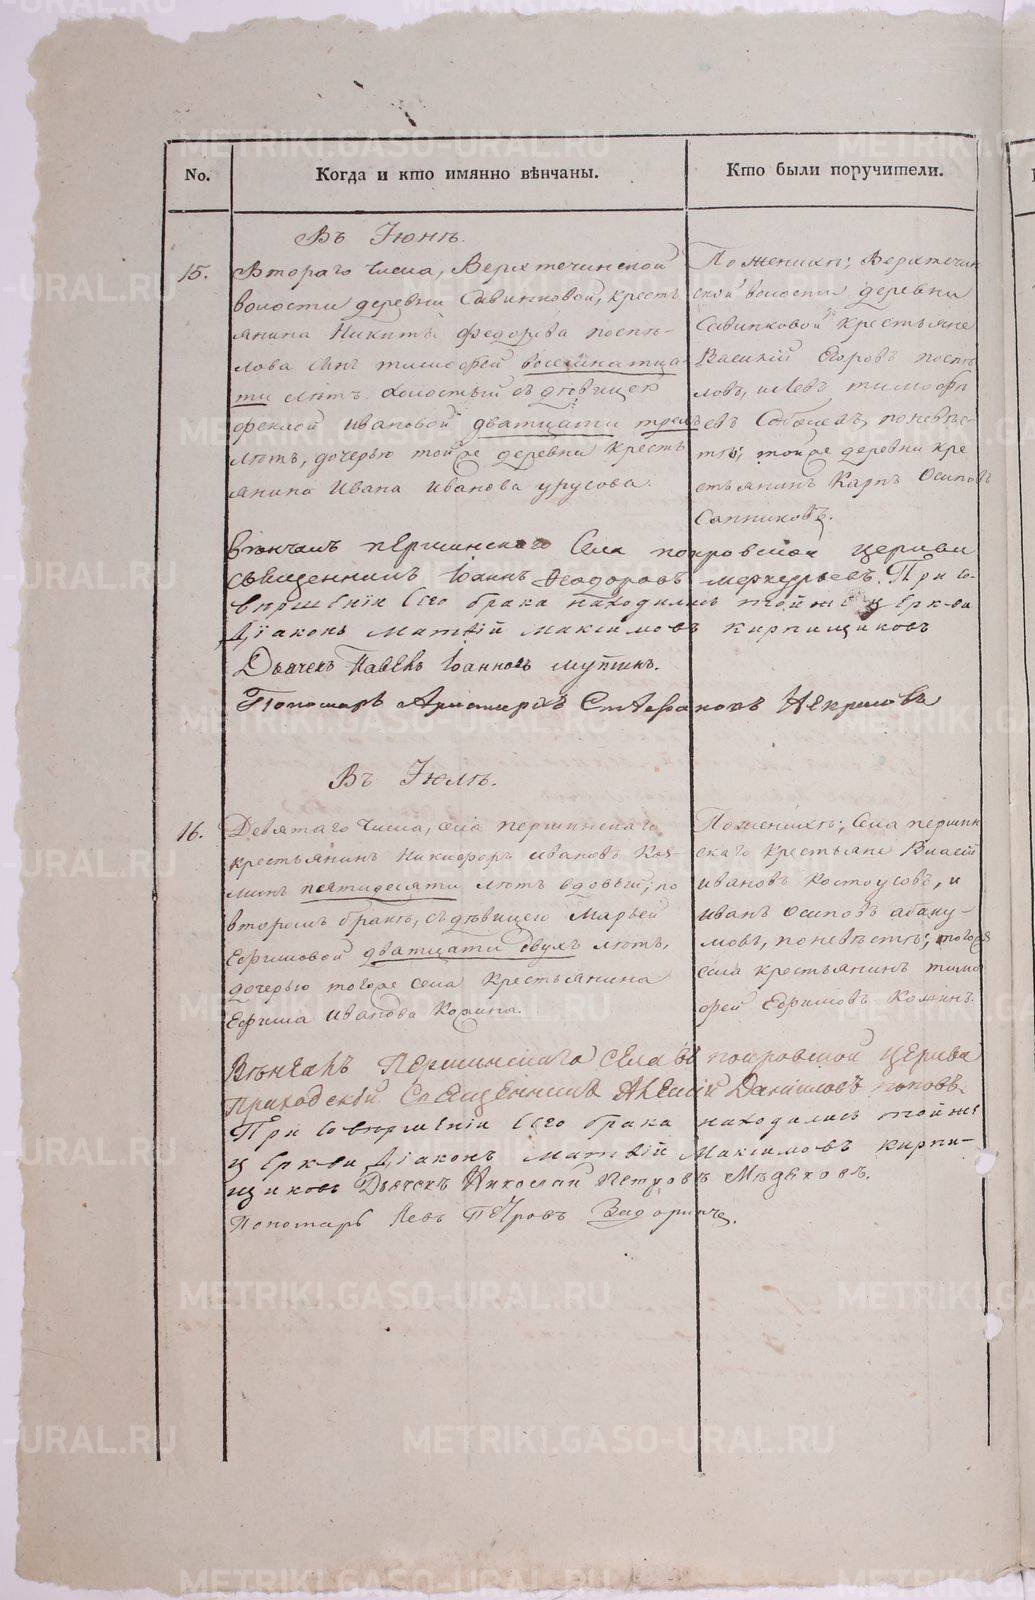 No.
Когда и кто имянно вѣнчаны.
Кто были поручители.
Въ Іюнѣ.
15.
Втораго числа, Верхтечинской
волости деревни Савинковой, кресть
янина Никиты Федорова поспѣ-
лова сынъ тимофей восемнатца
ти лѣтъ холостый съ дѣвицею
феклой ивановой дватцати трехъ
лѣтъ, дочерью тойже деревни кресть
янина Ивана иванова урусова.
По женихѣ; Верхтечин
ской волости деревни
Савинковой крестьяне
Василій Егоровъ поспѣ
ловъ, илевъ тимофѣ
евъ Соболевъ, поневѣс-
тѣ; тойже деревни кре
стьянинъ Карпъ Осиповъ
Санниковъ.
Вѣнчалъ першинскаго Села покровской церкви
священникъ Іоаннъ Феодоровъ меркурьевъ. При со-
вершеніи сего брака находились тойже церкви
Діаконъ матвій максимовъ кирпищиковъ
Дьячекъ Павелъ Іоанновъ
Пономарь Стефановъ Некрасовъ
Въ Іюлѣ.
16.
Девятаго числа, села першинскаго
крестьянинъ Никифоръ ивановъ Ко-
минъ пятидесяти лѣтъ вдовый, по
вторымъ бракѣ, съдѣвицею Марьей
Ефимовой дватцати двухъ лѣтъ,
дочерью тогоже села крестьянина
Ефима Иванова Комина.
Поженихѣ; Села першин
скаго крестьяне Василій
ивановъ Костоусовъ, и
иванъ осиповъ абаку-
мовъ, поневѣстѣ; тогоже
села крестьянинъ тимо
фей Ефимовъ Коминъ.
Вѣнчалъ Першинскаго села покровской церкви
приходскій Священникъ Алексій Даниловъ поповъ
При совершеніи сего брака находились тойже
церкви Діаконъ матвій Максимовъ кирпи-
щиковъ Дьячекъ Николай Петровъ
Пономарь Левъ Петровъ
METRIKI.GASO-URAL.RU